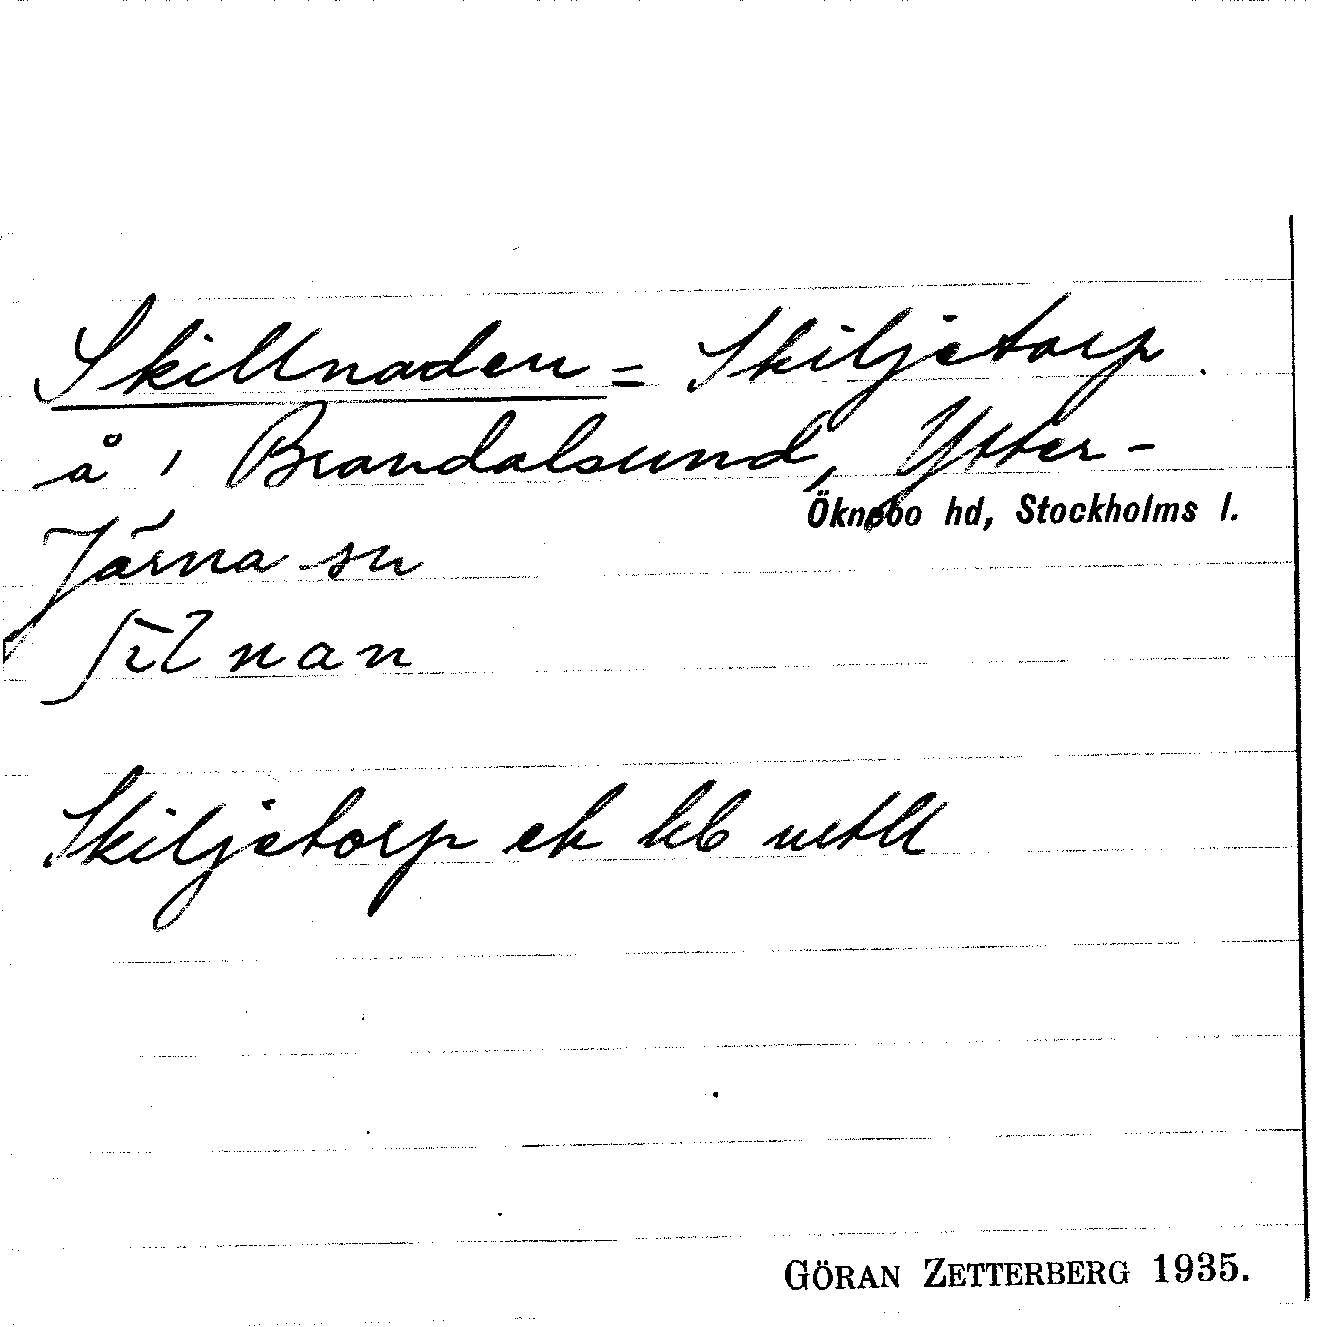 Skillnaden = Skiljetorp
å i Brandalsund, Ytter-
Öknebo hd, Stockholms l.
Järna sn
nan
Skiljetorp ek kb
GÖRAN ZETTERBERG 1935.